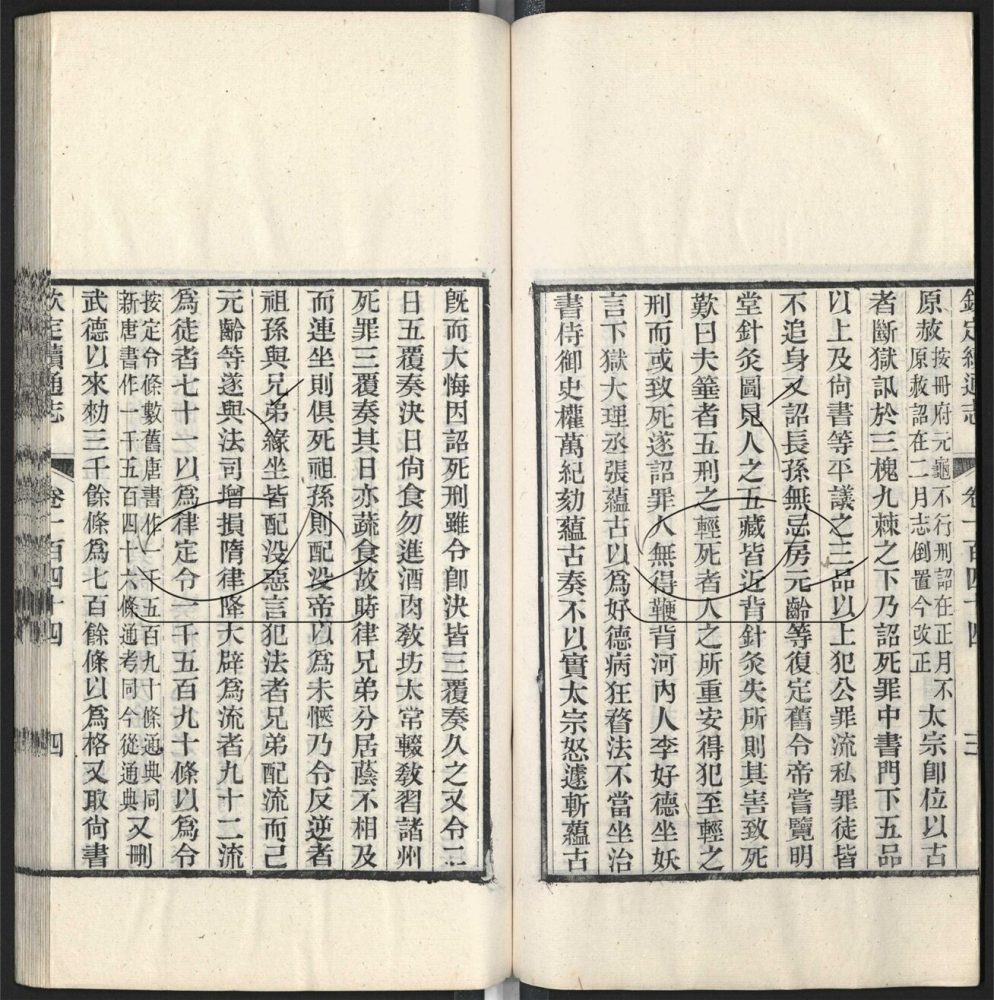 欽定續通志 卷一百四十四 三
原赦按冊府元龜不行刑詔在正月不原赦詔在二月志倒置今改正太宗卽位以古
者斷獄訊於三槐九棘之下乃詔死罪中書門下五品
以上及尙書等平議之三品以上犯公罪流私罪徒皆
不追身又詔長孫無忌房元齡等復定舊令帝嘗覽明
堂針灸圖見人之五藏皆近背針灸失所則其害致死
歎曰夫箠者五刑之輕死者人之所重安得犯至輕之
刑而或致死遂詔罪人無得鞭背河內人李好德坐妖
言下獄大理丞張蘊古以爲好德病狂瞀法不當坐治
書侍御史權萬紀劾蘊古奏不以實太宗怒遽斬蘊古
旣而大悔因詔死刑雖令卽決皆三覆奏久之又令二
日五覆奏決日尙食勿進酒肉敎坊太常輟敎習諸州
死罪三覆奏其日亦蔬食故時律兄弟分居蔭不相及
而連坐則俱死祖孫則配沒帝以爲未愜乃令反逆者
祖孫與兄弟緣坐皆配沒惡言犯法者兄弟配流而已
元齡等遂與法司增損隋律降大辟爲流者九十二流
爲徒者七十一以爲律定令一千五百九十條以爲令
按定令條數舊唐書作一千五百九十條通典同
新唐書作一千五百四十六條通考同今從通典又刪
武德以來勑三千餘條爲七百餘條以爲格又取尙書
欽定續通志 卷一百四十四 四